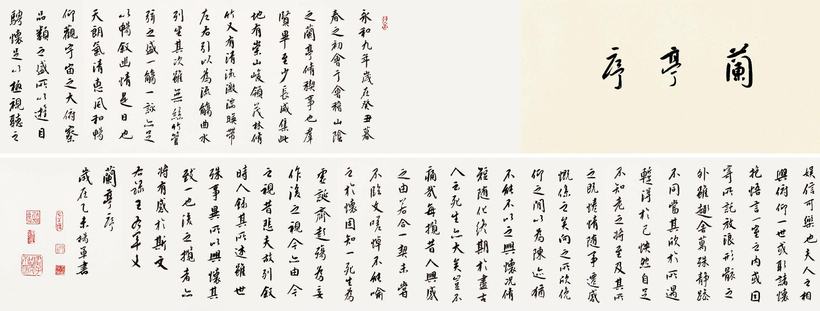 蘭亭序
永和九年歲在癸丑暮
春之初會于會稽山陰
之蘭亭脩禊事也群
賢畢至少長咸集此
地有崇山峻領茂林脩
竹又有清流激湍暎帶
左右引以為流觴曲水
列坐其次雖無絲竹管
弦之盛一觴一詠亦足
以暢敘幽情是日也
天朗氣清惠風和暢
仰觀宇宙之大俯察
品類之盛所以遊目
騁懷足以極視聽之
娱信可樂也夫人之相
與俯仰一世或取諸懷
抱悟言一室之內或因
寄所託放浪形骸之
外雖趣舍萬殊靜躁
不同當其欣於所遇
暫得於己怏然自足
不知老之將至及其所
之既惓情隨事遷感
慨係之矣向之所欣俛
仰之間以為陳迹猶
不能不以之興懷況脩
短隨化終期於盡古
人云死生亦大矣豈不
痛哉每攬昔人興感
之由若合一契未嘗
不臨文嗟悼不能喻
之於懷固知一死生為
虛誕齊彭殤為妄
作後之視今亦由今
之視昔悲夫故列敘
時人錄其所述雖世
殊事異所以興懷其
致一也後之攬者亦
將有感於斯文
右錄王右軍文
蘭亭序
歲在乙未楊軍書